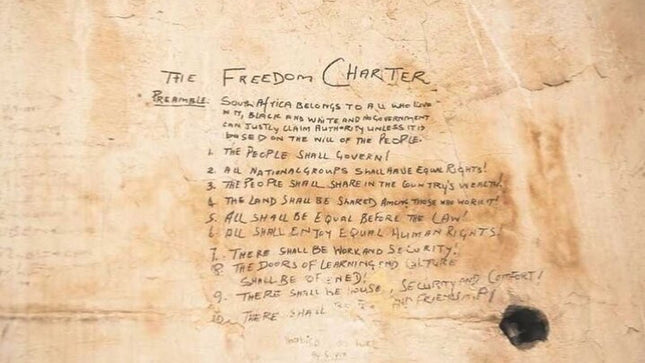 THE FREEDOM CHARTER
PREAMBLE: SOUTH AFRICA BELONGS TO ALL WHO LIVE
IN IT, BLACK AND WHITE AND NO GOVERNMENT
CAN JUSTLY CLAIM AUTHORITY UNLESS IT IS
BASED ON THE WILL OF THE PEOPLE.
1. THE PEOPLE SHALL GOVERN!
2. ALL NATIONAL GROUPS SHALL HAVE EQUAL RIGHTS!
3. THE PEOPLE SHALL SHARE IN THE COUNTRY'S WEALTH!
4. THE LAND SHALL BE SHARED AMONG THOSE WHO WORK IT!
5. ALL SHALL BE EQUAL BEFORE THE LAW!
6. ALL SHALL ENJOY EQUAL HUMAN RIGHTS!
7. THERE SHALL BE WORK AND SECURITY!
8. THE DOORS OF LEARNING AND CULTURE
SHALL BE
9. THERE SHALL BE SECURITY AND COMFORT!
10. THERE SHALL